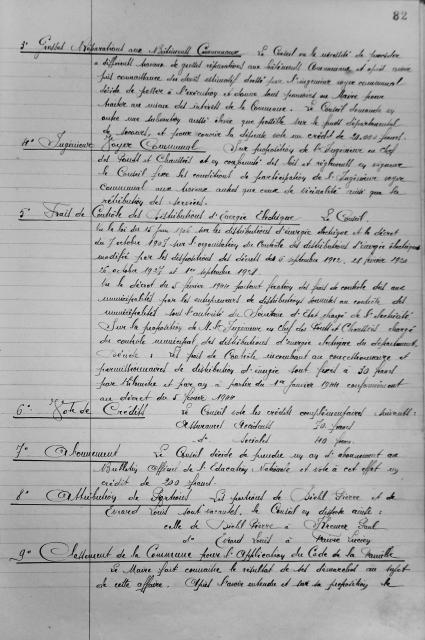 82
3° Grosses Réparations aux Bâtiments Communaux Le Conseil vu la nécessité de procéder
à différents travaux de grosses réparations aux bâtiments Communaux et après avoir
pris connaissance du devis estimatif dressé par l'ingénieur voyer communal
décide de passer à l'exécution et donne tout pouvoirs au Maire pour
traiter au mieux des intérêts de la Commune. Le Conseil demande en
outre une subvention aussi élevée que possible sur le fonds départemental
et pour couvrir la dépense vote un crédit de 20.000 francs.
4° Ingénieur Voyer Communal Sur proposition de l'Ingénieur en Chef
des Ponts et Chaussées et en conformité des lois et règlements en vigueur
le Conseil fixe les conditions de participation de l'Ingénieur voyer
Communal aux travaux autres que ceux de vicinalité ainsi que la
rétribution des services.
5° Frais de Contrôle des Distributions d'Énergie Électrique Le Conseil
Vu la loi du 15 juin 1906 sur les distributions d'énergie électrique et le décret
du 7 octobre 1907 sur l'organisation du Contrôle des distributions d'énergie électrique
modifié par les dispositions des décrets des 6 septembre 1912, 28 février 1920
26 octobre 1927 et 1er septembre 1928.
Vu le décret du 5 février 1944 portant fixation des frais de contrôle dus aux
municipalités par les entrepreneurs de distributions soumises au contrôle des
municipalités sous l'autorité du Secrétaire d'État chargé de l'électricité
Sur la proposition de M. l'Ingénieur en Chef des Ponts et Chaussées chargé
du contrôle municipal des distributions d'énergie électrique du département.
Décide : Les frais de Contrôle incombant au concessionnaire et
permissionnaires de distribution d'énergie sont fixés à 30 francs
par Kilomètre et par an à partir du 1er janvier 1944 conformément
au décret du 5 février 1944
6° Vote de Crédits Le Conseil vote les crédits complémentaires suivants :
Assurances Accidents 50 francs
d° Sociales 40 francs.
7° Abonnement Le Conseil décide de prendre un an d'abonnement au
Bulletin Officiel de l'Education Nationale et vote à cet effet un
crédit de 200 francs.
8° Attribution de Portions Les portions de Diehl Pierre et de
Evrard Louis sont vacantes, le Conseil en dispose ainsi :
celle de Diehl Pierre à Paul
d° Evrard Louis à
9° Classement de la Commune pour l'Application du Code de la Famille
Le Maire fait connaître le résultat de ses démarches au sujet
de cette affaire. Après l'avoir entendu et sur sa proposition le